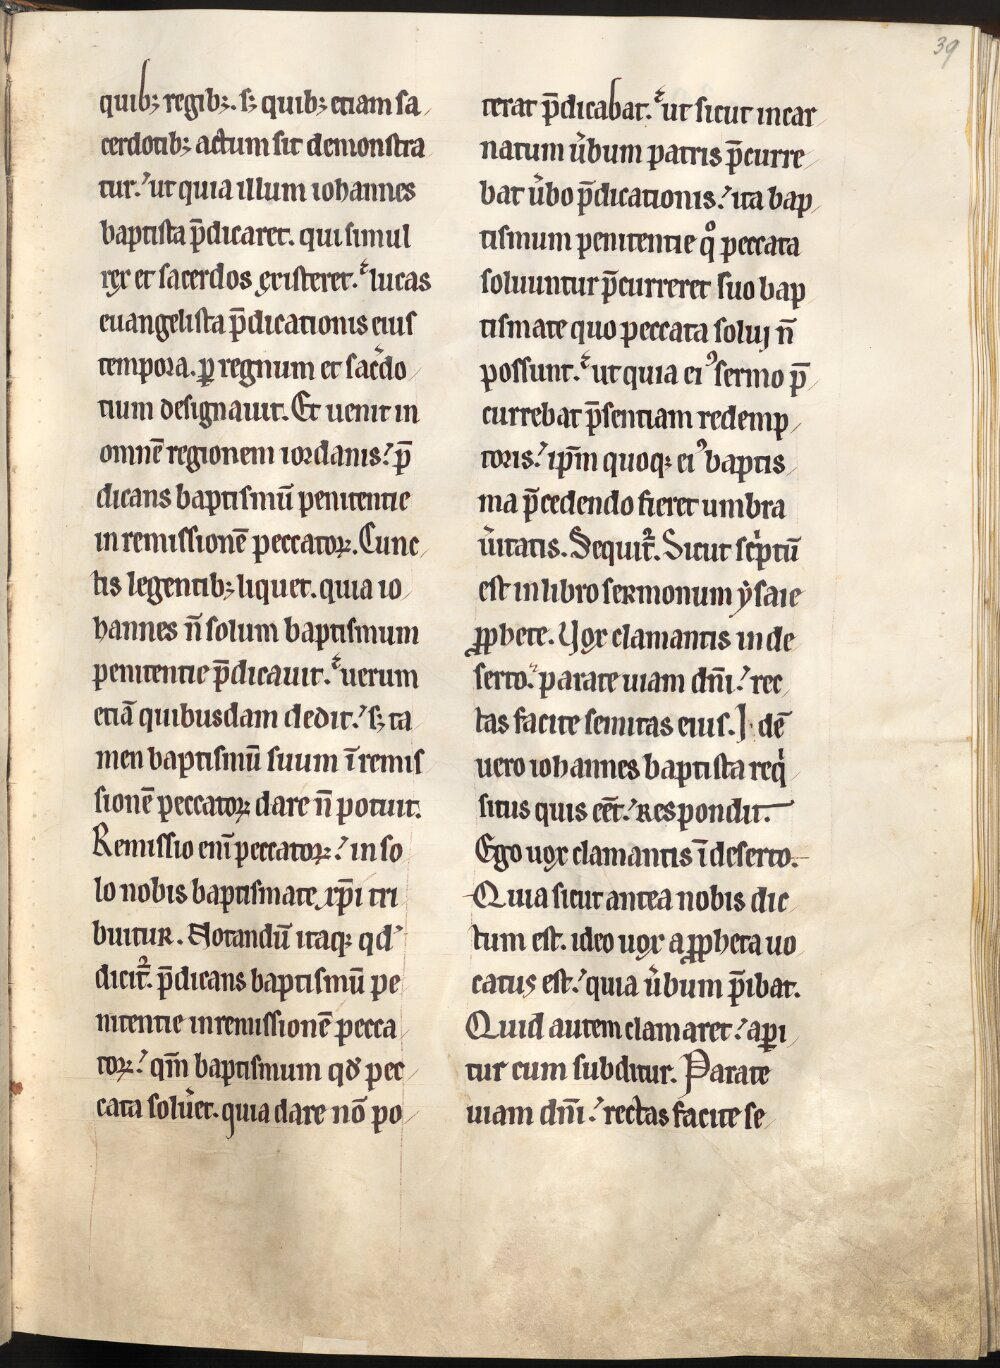 39
quib; regib;. s; quib; etiam sa
cerdotib; actum sit demonstra
tur. ut quia illum iohannes
baptista p̄dicaret. qui simul
rex et sacerdos existeret. lucas
euangelista p̄dicationis eius
tempora. ꝑ regnum et sac̄do
tium designauit. Et uenit in
omnē regionem iordanis. p̄
dicans baptismū penitentie
in remissionē peccatoꝝ. Cunc
tis legentib; liquet. quia io
hannes n̄ solum baptismum
penitentie p̄dicauit. uerum
etiā quibusdam dedit. s; ta
men baptismū suum ī remis
sionē peccatoꝝ dare n̄ potuit.
Remissio eni̅ peccatoꝝ. in so
lo nobis baptismate xp̄i tri
buitur. Notandū itaq; qd'
dicit᷑. p̄dicans baptismū pe
nitentie in remissionē pecca
toꝝ. qm̄ baptismum qd' pec
cata solu̓et. quia dare nō po
terat p̄dicabat. ut sicut incar
natum u̓bum patris p̄curre
bat u̓bo p̄dicationis. ita bap
tismum penitentie qͦ peccata
soluuntur p̄curreret suo bap
tismate quo peccata solui n̄
possunt. ut quia eiꝰ sermo p̄
currebat p̄sentiam redemp
toris. ip̄m quoq; eiꝰ baptis
ma p̄cedendo fieret umbra
u̓itatis. Sequit᷑. Sicut sc̓ptū
est in libro sermonum ysaie
ꝓphete. Uox clamantis in de
serto. parate uiam dn̄i. rec
tas facite semitas eius. Idē
uero iohannes baptista reqͥ
situs quis eēt. Respondit.
Ego uox clamantis ī deserto.
Quia sicut antea nobis dic
tum est. ideo uox a ꝓpheta uo
catus est. quia u̓bum p̄ibat.
Quid autem clamaret. aꝑi
tur cum subditur. Parate
uiam dn̄i. rectas facite se